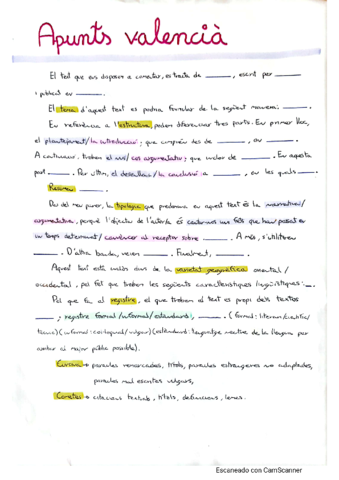 Apunts valencià
El text que ens disposem a comentar, es tracta de ______, escrit per ______
i publicat en ______.
El tema d'aquest text es podria formular de la següent manera: ______.
En referència a l'estructura, podem diferenciar tres parts. En primer lloc,
el plantejament/la introducció; que comprèn des de ______, on ______.
A continuació, trobem el nus/cos argumentatiu; que inclou de ______. En aquesta
part ______. Per últim, el desenllaç/la conclusió: a ______, en les quals ______.
Resumeu ______.
Des del meu punt, la tipologia que predomina en aquest text és la narrativa/
argumentativa, perquè l'objectiu de l'autor/a és contar-nos uns fets que han passat en
un temps determinat/convèncer al receptor sobre ______. A més, s'utilitzen
______. D'altra banda, veiem ______. Finalment, ______.
Aquest text està inclòs dins de la varietat geogràfica oriental/
occidental, pel fet que trobem les següents característiques lingüístiques: __.
Pel que fa al registre, el que trobem al text es propi dels textos
______, registre formal/informal/estàndard, ______. (formal: literari/científic/
tècnic) (informal: col·loquial/vulgar) (estàndard: llenguatge neutre de la llengua per
arribar al major públic possible).
Cursiva → paraules remarcades, títols, paraules estrangeres no adaptades,
paraules mal escrites, vulgars,
Cometes → citacions textuals, títols, definicions, lemes.
Escaneado con CamScanner